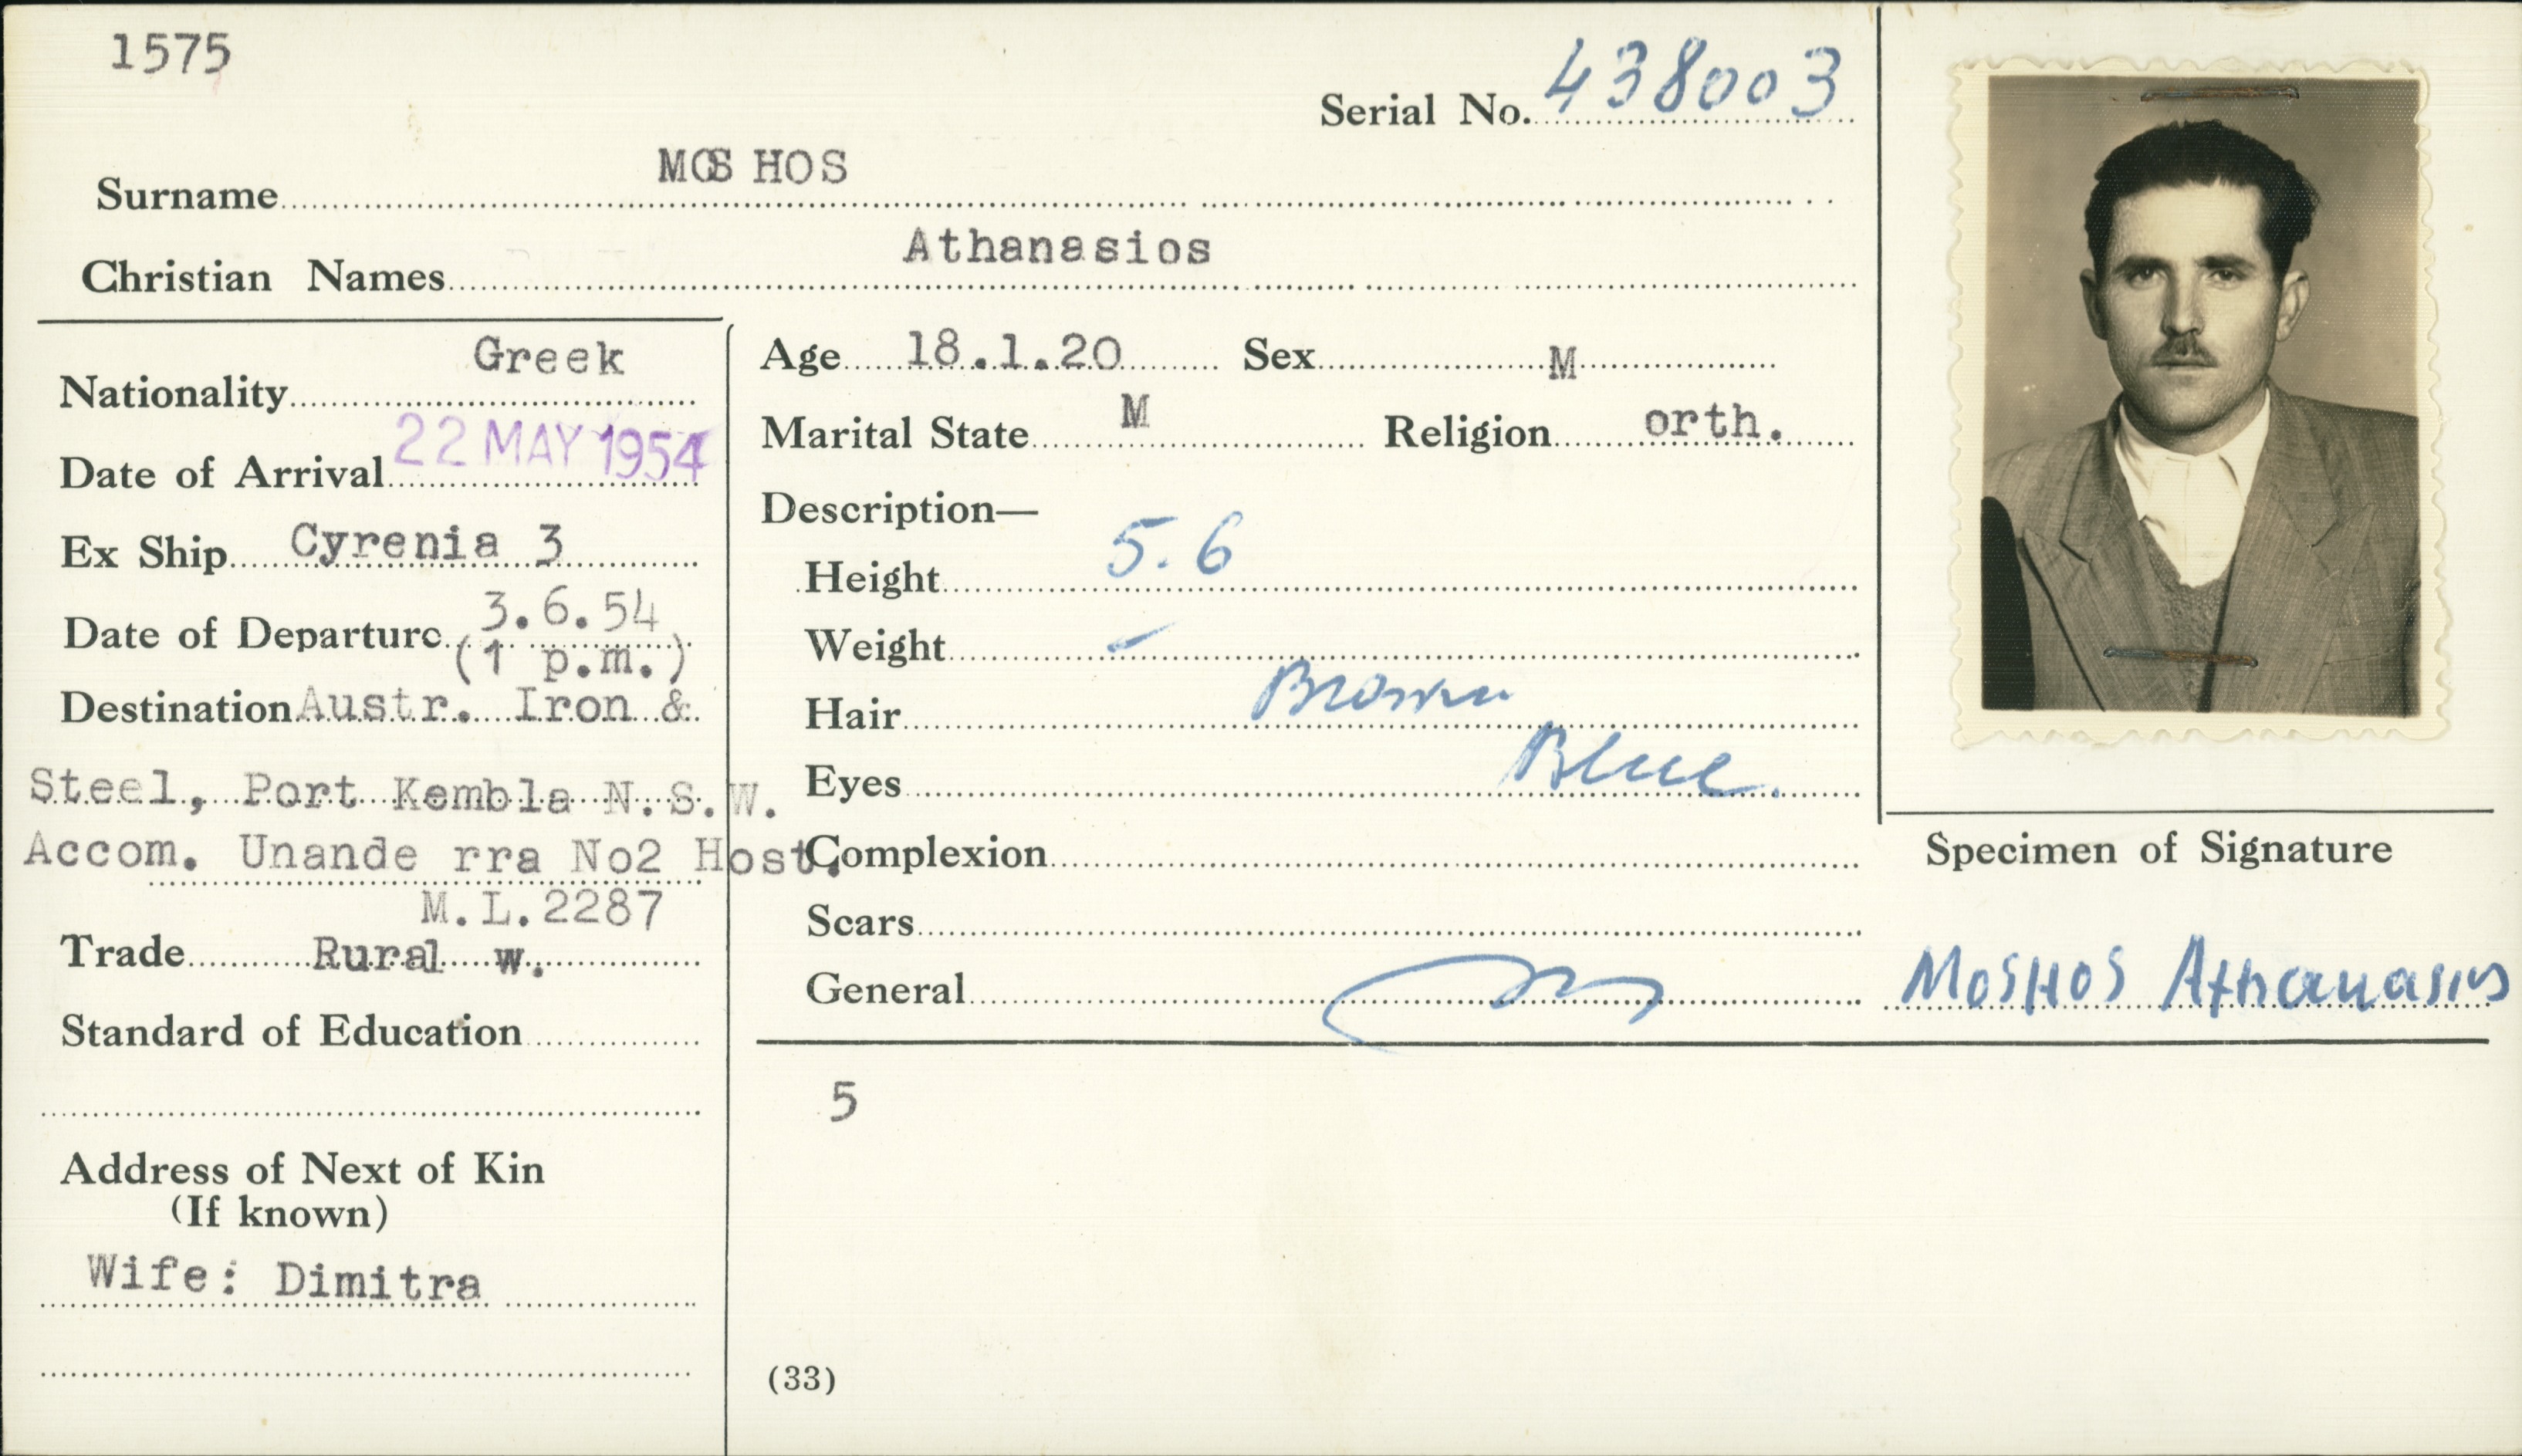 1575
Serial No. 438003
Surname MOSHOS
Christian Names Athanasios
Nationality Greek
Date of Arrival 22 MAY 1954
Ex Ship Cyrenia 3
Date of Departure 3.6.54
(1 p.m.)
Destination Austr. Iron &
Steel, Port Kembla N.S.W.
Accom. Unande rra No2 Host.
M.L.2287
Trade Rural w.
Standard of Education
Address of Next of Kin
(If known)
Wife: Dimitra
Age 18.1.20 Sex M
Marital State M Religion orth.
Description—
Height 5.6
Weight -
Hair Brown
Eyes Blue.
Complexion
Scars
General
5
(33)
Specimen of Signature
MOSHOS Athanasios